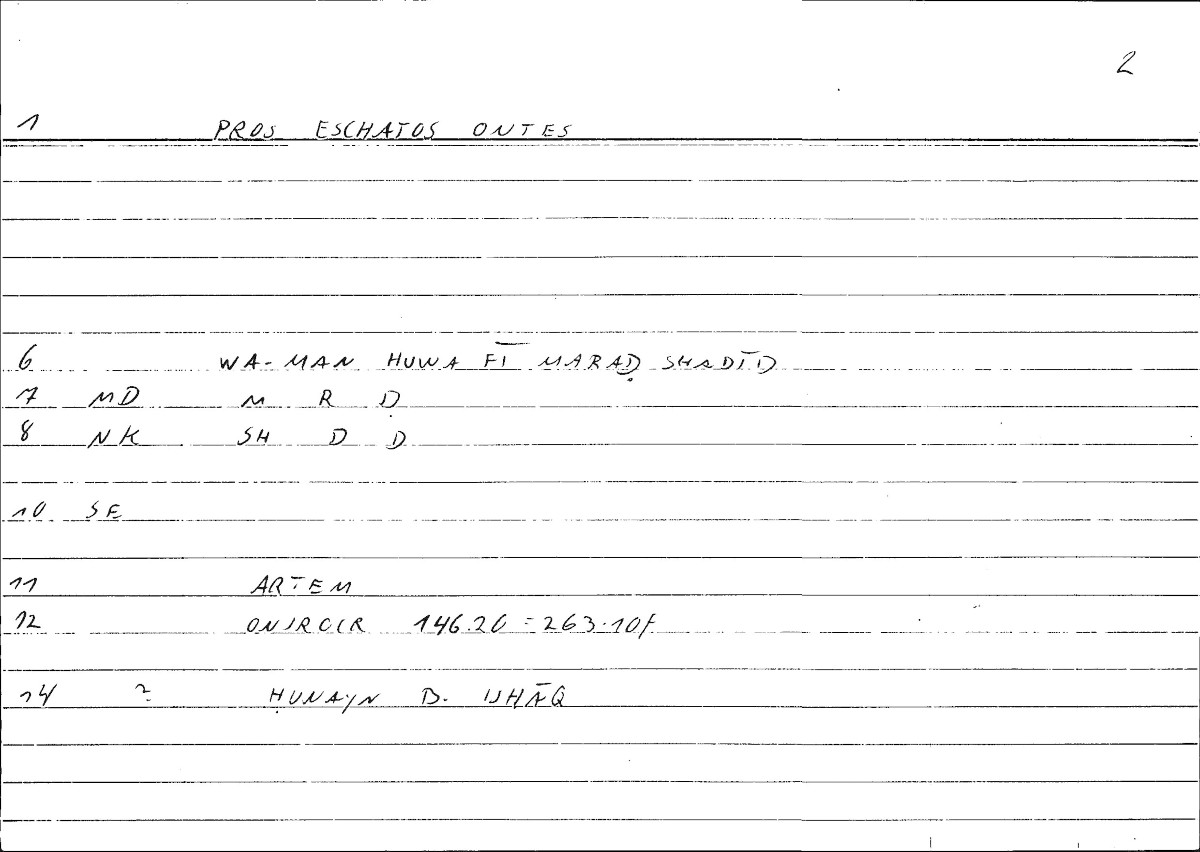 2
1 PROS ESCHATOS ONTES
6 WA-MAN HUWA FĪ MARAḌ SHADĪD
7 MD M R Ḍ
8 NK SH D D
10 SE
11 ARTEM
12 ONIROCR 146.20 = 263.10f
14 ? ḤUNAYN B. ISḤĀQ